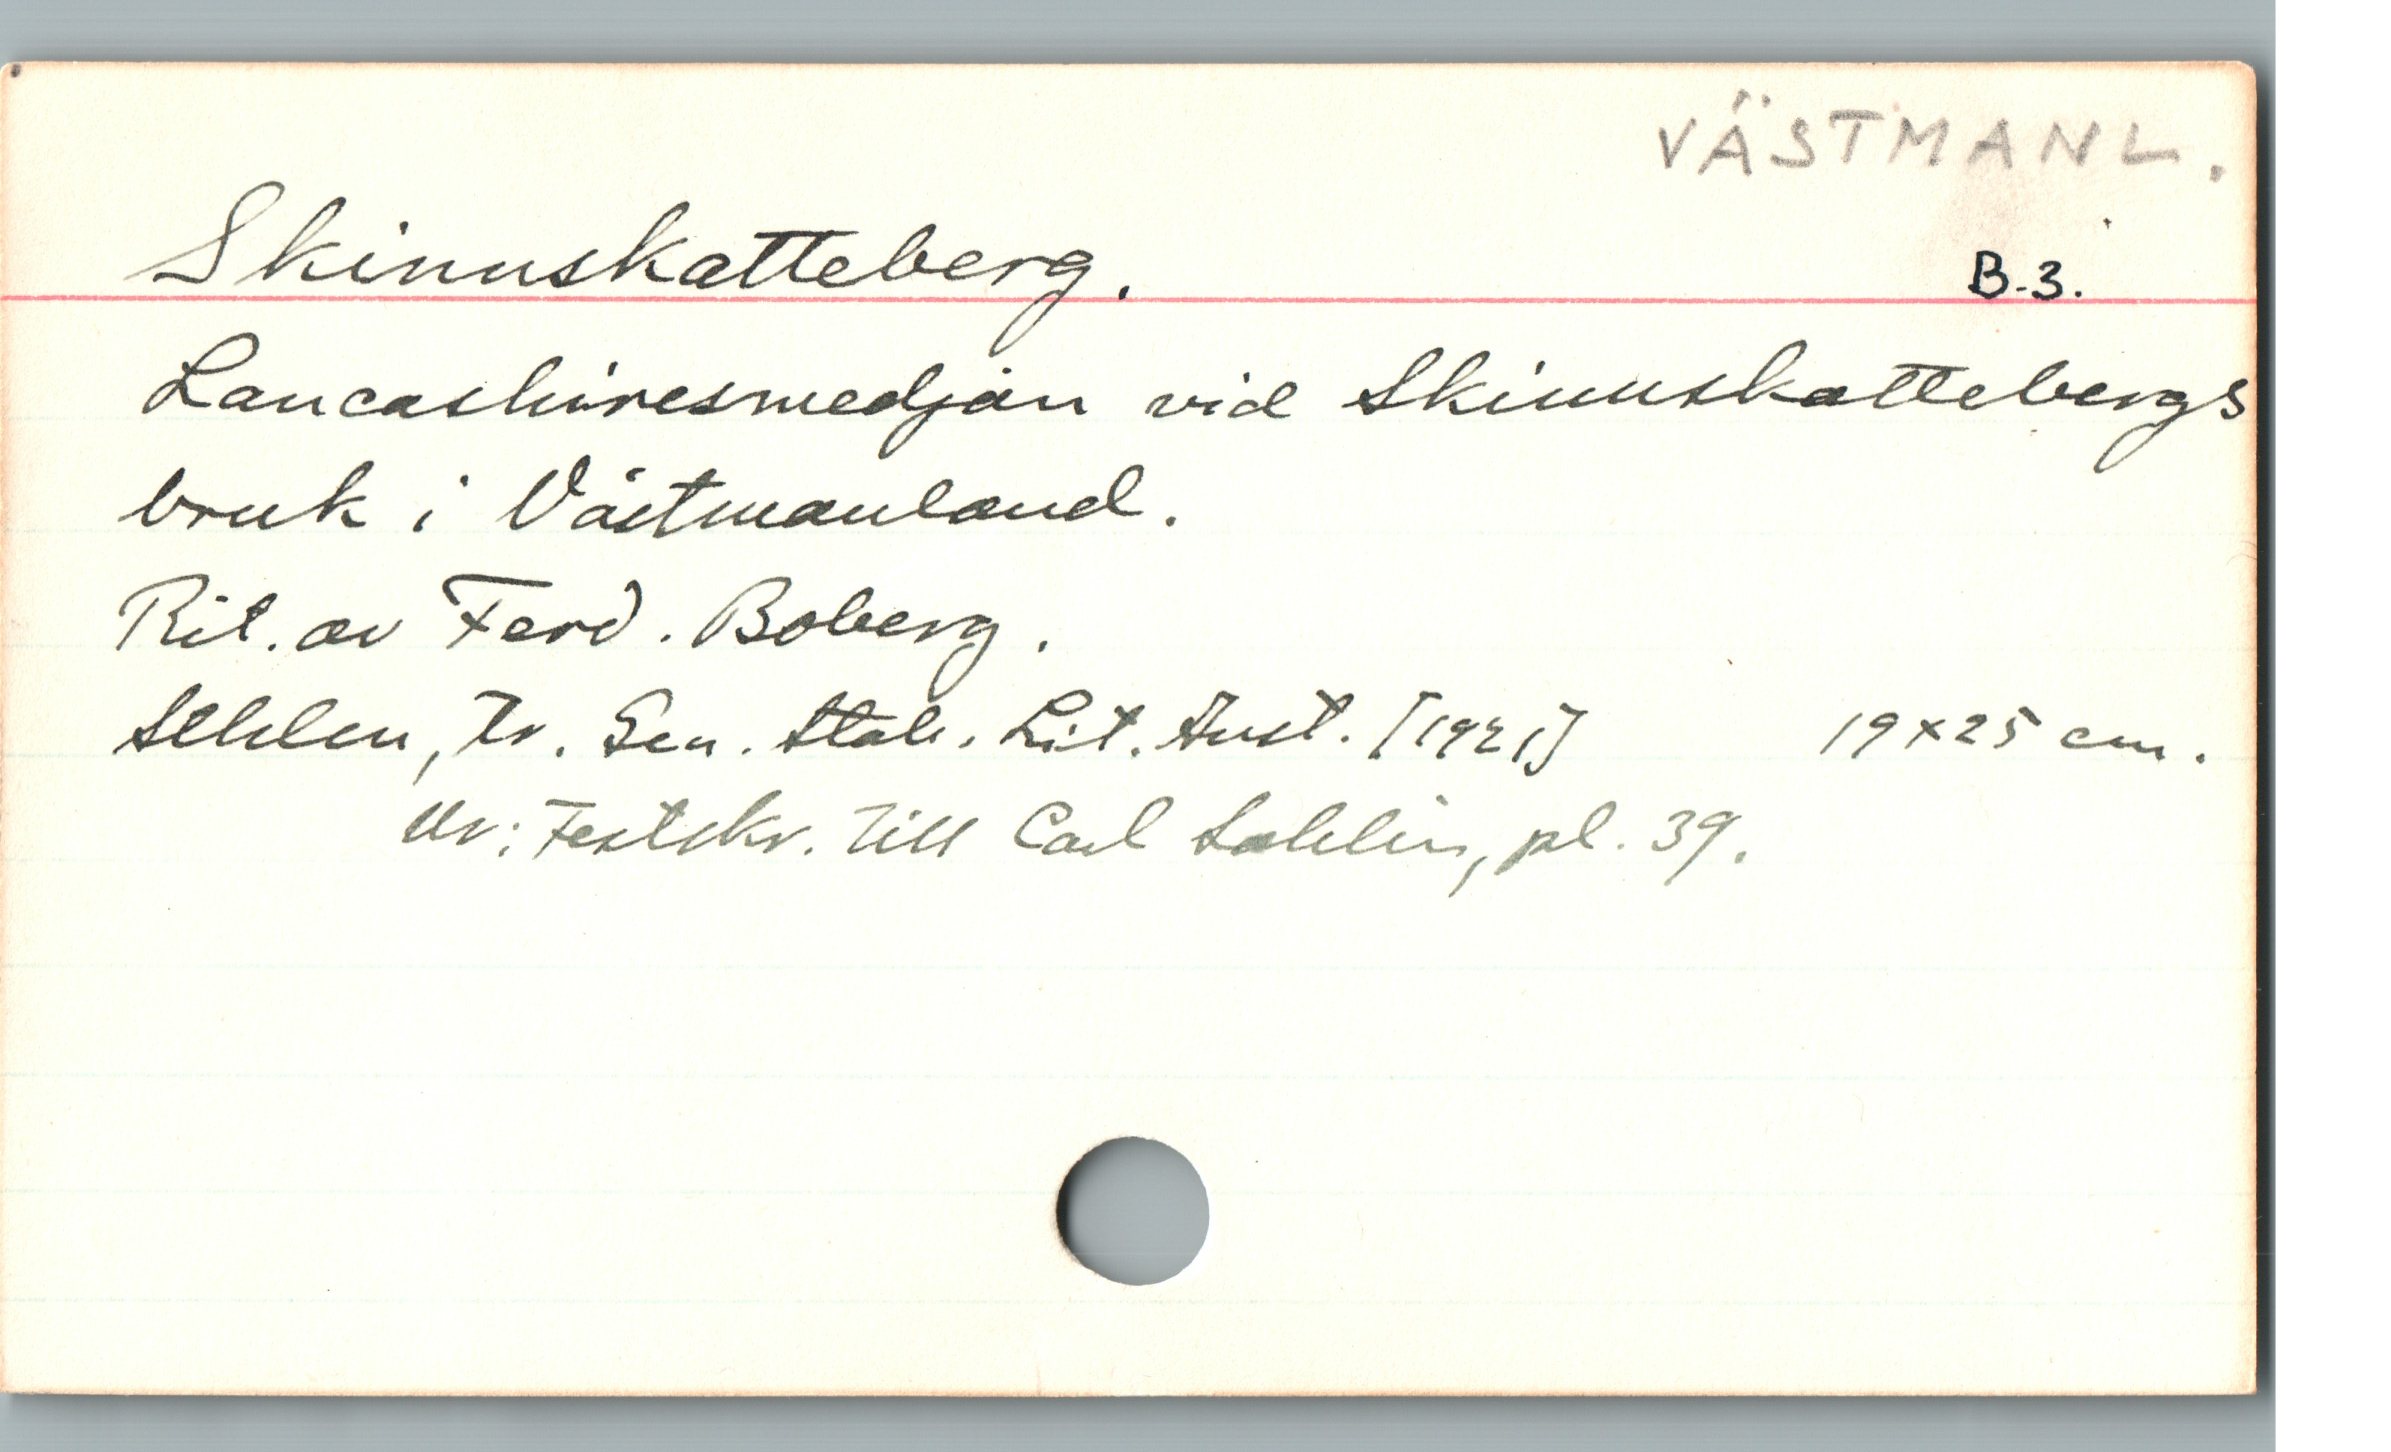 VÄSTMANL.
Skinnskatteberg.
B.3.
Lancashiresmedjan vid Skinnskattebergs
bruk i Västmanland.
Rit. av Ferd. Boberg.
Sthlm, Tr. Gen. Stab. Lit. Anst. [1921] 19x25 cm.
Ur: Festskr. till Carl Sahlin, pl. 39.